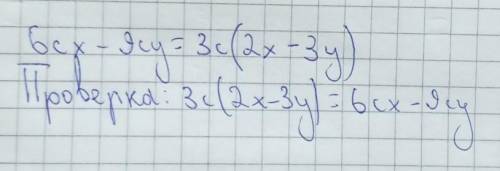 6cx - 9cy = 3c(2x - 3y)
Проверка: 3c(2x-3y) = 6cx - 9cy